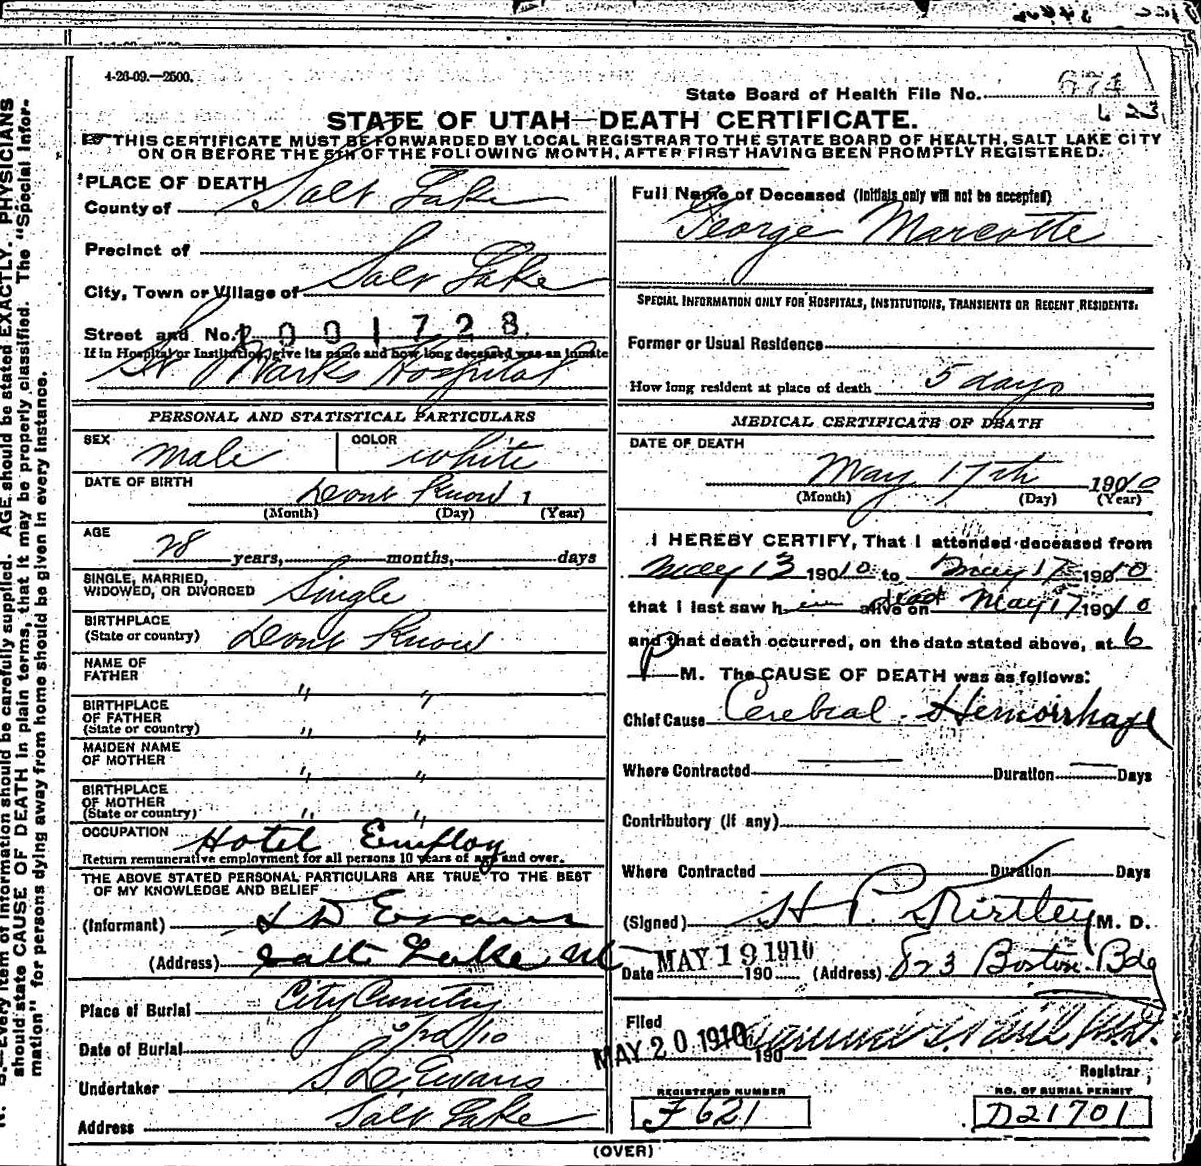 4-26-09.—2500.
State Board of Health File No. 674
STATE OF UTAH—DEATH CERTIFICATE.
THIS CERTIFICATE MUST BE FORWARDED BY LOCAL REGISTRAR TO THE STATE BOARD OF HEALTH, SALT LAKE CITY
ON OR BEFORE THE 5TH OF THE FOLLOWING MONTH, AFTER FIRST HAVING BEEN PROMPTLY REGISTERED.
PLACE OF DEATH
County of Salt Lake
Precinct of
City, Town or Village of Salt Lake
Street and No. 2001728
If in Hospital or Institution, give its name and how long deceased was an inmate
St Marks Hospital
PERSONAL AND STATISTICAL PARTICULARS
SEX male COLOR white
DATE OF BIRTH Dont Know 1
(Month) (Day) (Year)
AGE 28 years, months, days
SINGLE, MARRIED,
WIDOWED, OR DIVORCED Single
BIRTHPLACE
(State or country) Dont Know
NAME OF
FATHER " "
BIRTHPLACE
OF FATHER
(State or country) " "
MAIDEN NAME
OF MOTHER " "
BIRTHPLACE
OF MOTHER
(State or country) " "
OCCUPATION Hotel Employ
Return remunerative employment for all persons 10 years of age and over.
THE ABOVE STATED PERSONAL PARTICULARS ARE TRUE TO THE BEST
OF MY KNOWLEDGE AND BELIEF
(Informant) S D Evans
(Address) Salt Lake Ut
Place of Burial City Cemetry
Date of Burial 5/20/10
Undertaker S D Evans
Address Salt Lake
Full Name of Deceased (Initials only will not be accepted)
George Marcotte
SPECIAL INFORMATION ONLY FOR HOSPITALS, INSTITUTIONS, TRANSIENTS OR RECENT RESIDENTS.
Former or Usual Residence
How long resident at place of death 5 days
MEDICAL CERTIFICATE OF DEATH
DATE OF DEATH
May 17th 19010
(Month) (Day) (Year)
I HEREBY CERTIFY, That I attended deceased from
May 13 19010 to May 17 19010
that I last saw him alive on dead May 17 19010
and that death occurred, on the date stated above, at 6
P M. The CAUSE OF DEATH was as follows:
Chief Cause Cerebral Hemorrhage
Where Contracted Duration Days
Contributory (if any)
Where Contracted Duration Days
(Signed) H P Kirtley M. D.
Date MAY 19 1910 190 (Address) 823 Boston Bdg
Filed
MAY 20 1910 190
Registrar
REGISTERED NUMBER
F621
NO. OF BURIAL PERMIT
D21701
(OVER)
B.—Every item of information should be carefully supplied. AGE should be stated EXACTLY. PHYSICIANS
should state CAUSE OF DEATH in plain terms, that it may be properly classified. The "Special Infor-
mation" for persons dying away from home should be given in every instance.